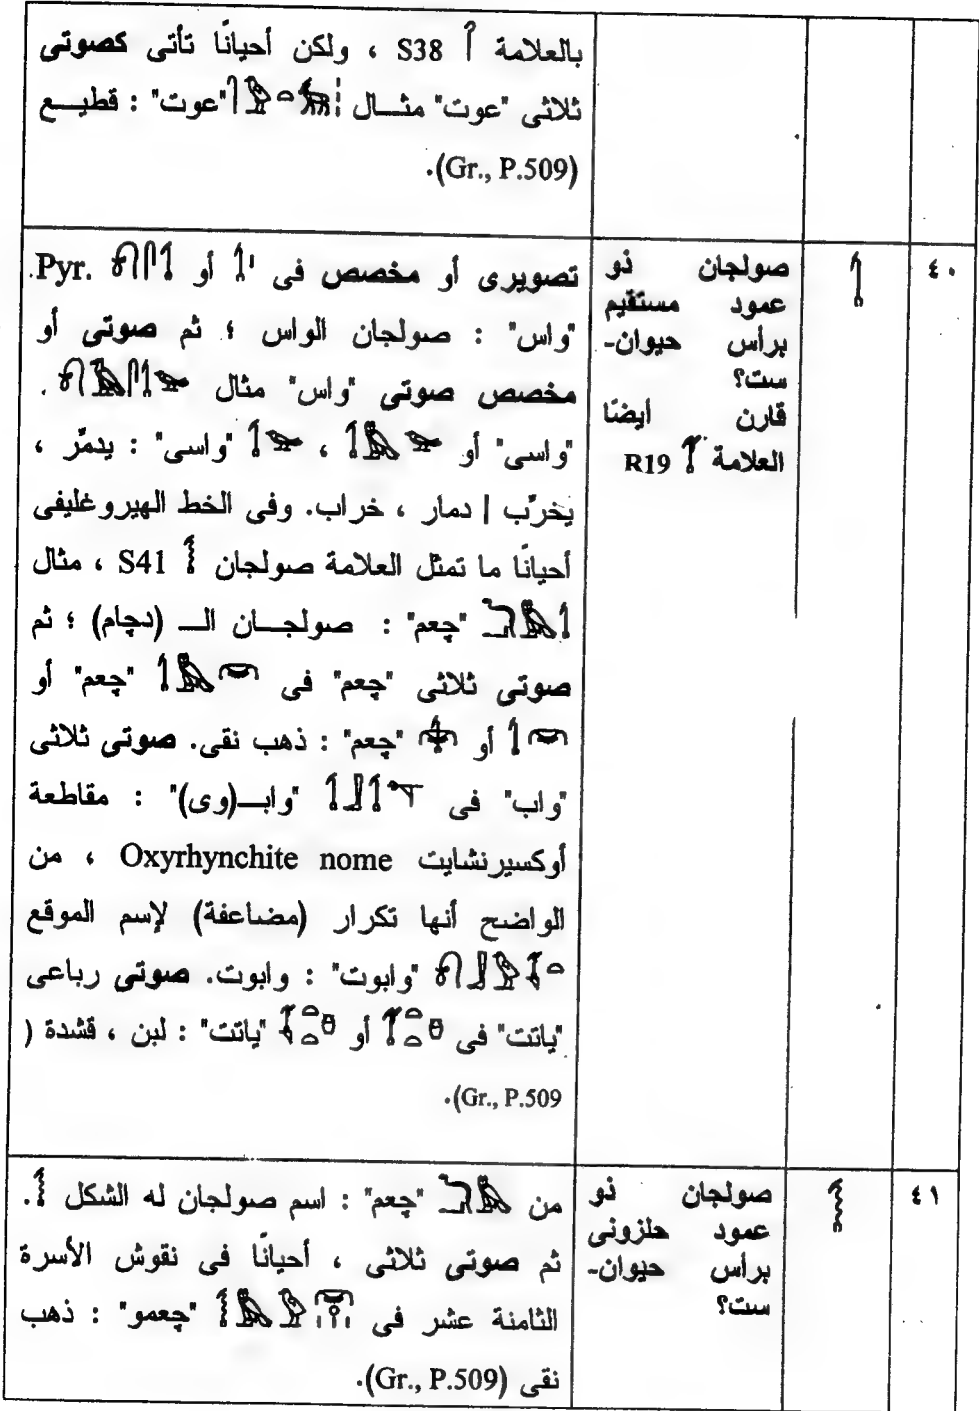 بالعلامة 𓋾 S38 ، ولكن أحيانًا تأتى كصوتى
ثلاثى "عوت" مثـــال "عوت" : قطيـــع
(Gr., P.509).
٤٠
صولجان ذو
عمود مستقيم
برأس حيوان-
ست؟
قارن أيضنا
العلامة R19
تصويرى أو مخصص فى أو Pyr.
"واس" : صولجان الواس ؛ ثم صوتى أو
مخصص صوتى "واس" مثال .
"واسى" أو ، "واسى" : يدمَّر ،
يخرَّب | دمار ، خراب. وفى الخط الهيروغليفى
أحيانًا ما تمثل العلامة صولجان S41 ، مثال
"چعم" : صولجـــان الـــ (دچام) ؛ ثم
صوتى ثلاثى "چعم" فى "چعم" أو
أو "چعم" : ذهب نقى. صوتى ثلاثى
"واب" فى "وابــ(وى)" : مقاطعة
أوكسيرنشايت Oxyrhynchite nome ، من
الواضح أنها تكرار (مضاعفة) لإسم الموقع
"وابوت" : وابوت. صوتى رباعى
"ياتت" فى أو "ياتت" : لبن ، قشدة (
Gr., P.509).
٤١
صولجان ذو
عمود حلزونى
برأس حيوان-
ست؟
من "چعم" : اسم صولجان له الشكل .
ثم صوتى ثلاثى ، أحيانًا فى نقوش الأسرة
الثامنة عشر فى "چعمو" : ذهب
نقى (Gr., P.509).